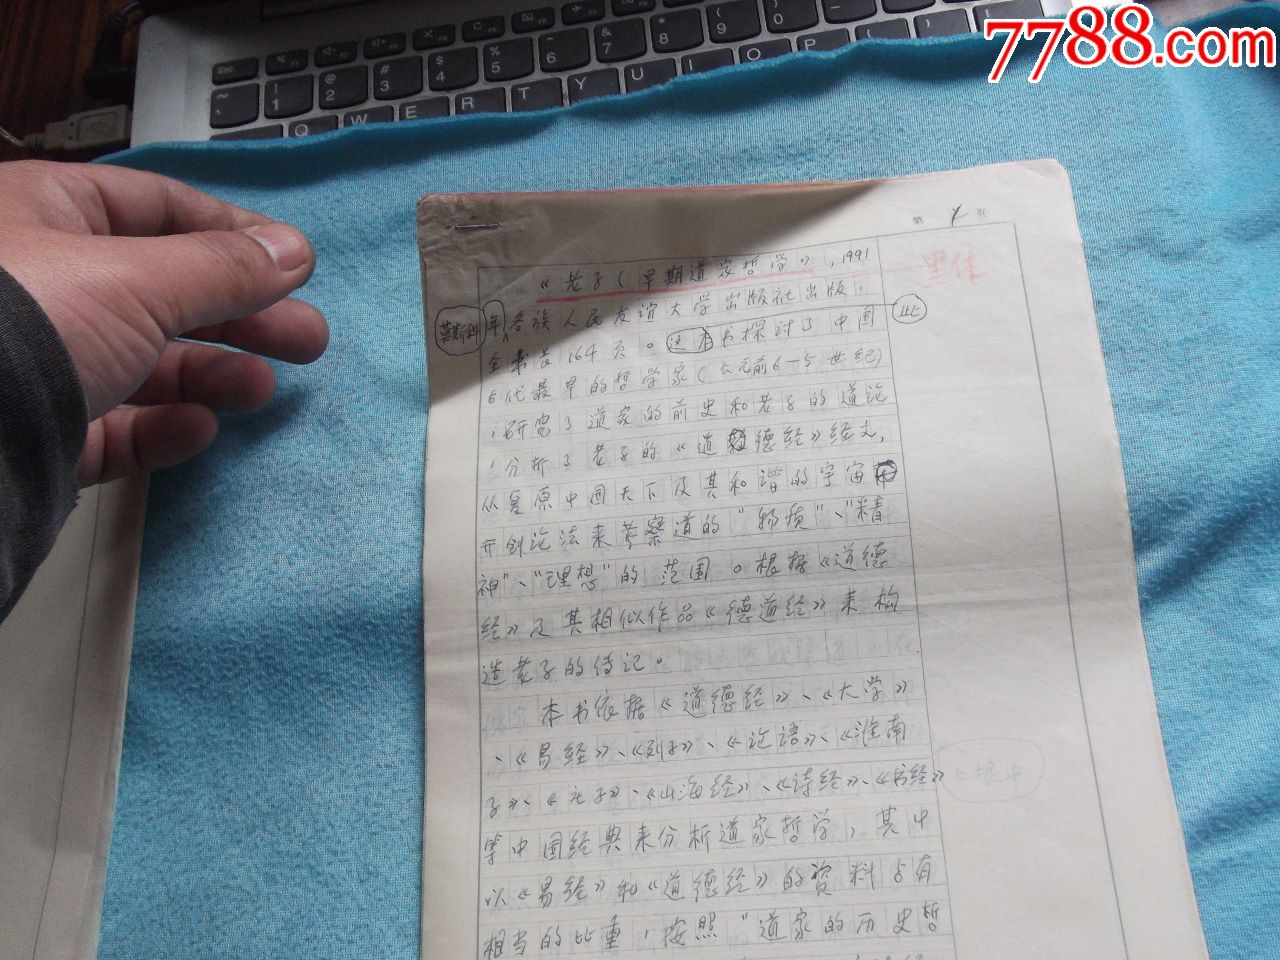 7788.com
第 1 页
《老子(早期道家哲学》,1991
黑体
莫斯科
年各族人民友谊大学出版社出版,
全书长164页。这本书探讨了中国
此
古代最早的哲学家(公元前6—5世纪)
,研究了道家的前史和老子的道论
,分析了老子的《道德经》经文,
从复原中国天下及其和谐的宇宙
开创论法来考察道的"物质"、"精
神"、"理想"的范围。根据《道德
经》及其相似作品《德道经》来构
造老子的传记。
本书依据《道德经》、《大学》
、《易经》、《列子》、《论语》、《淮南
子》、《老子》、《山海经》、《诗经》、《书经》
等中国经典来分析道家哲学,其中
以《易经》和《道德经》的资料占有
相当的比重,按照"道家的历史哲